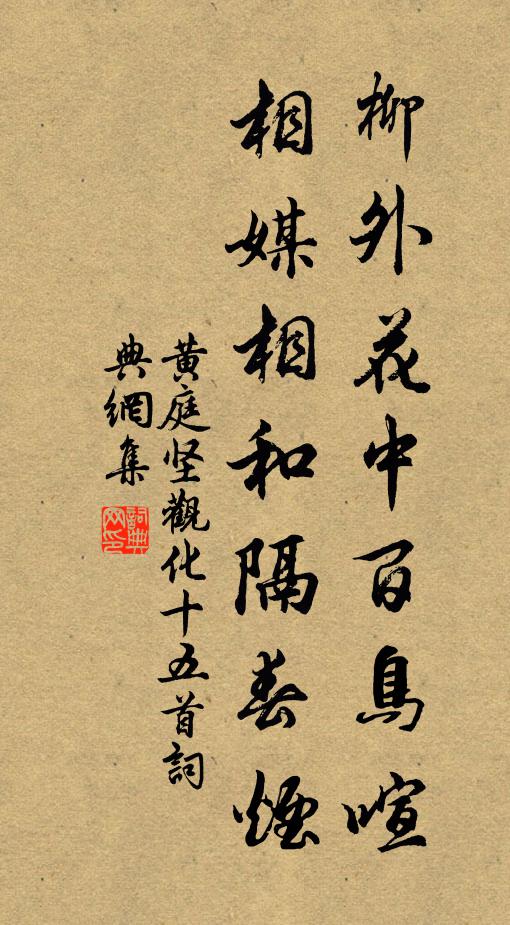 柳外花中百鳥喧
相媒相和隔春煙
黄庭坚觀化十五首詞
典網集
詞典網印